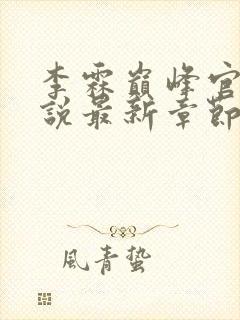 李霖巔峰官
說最新章節
風青蟄